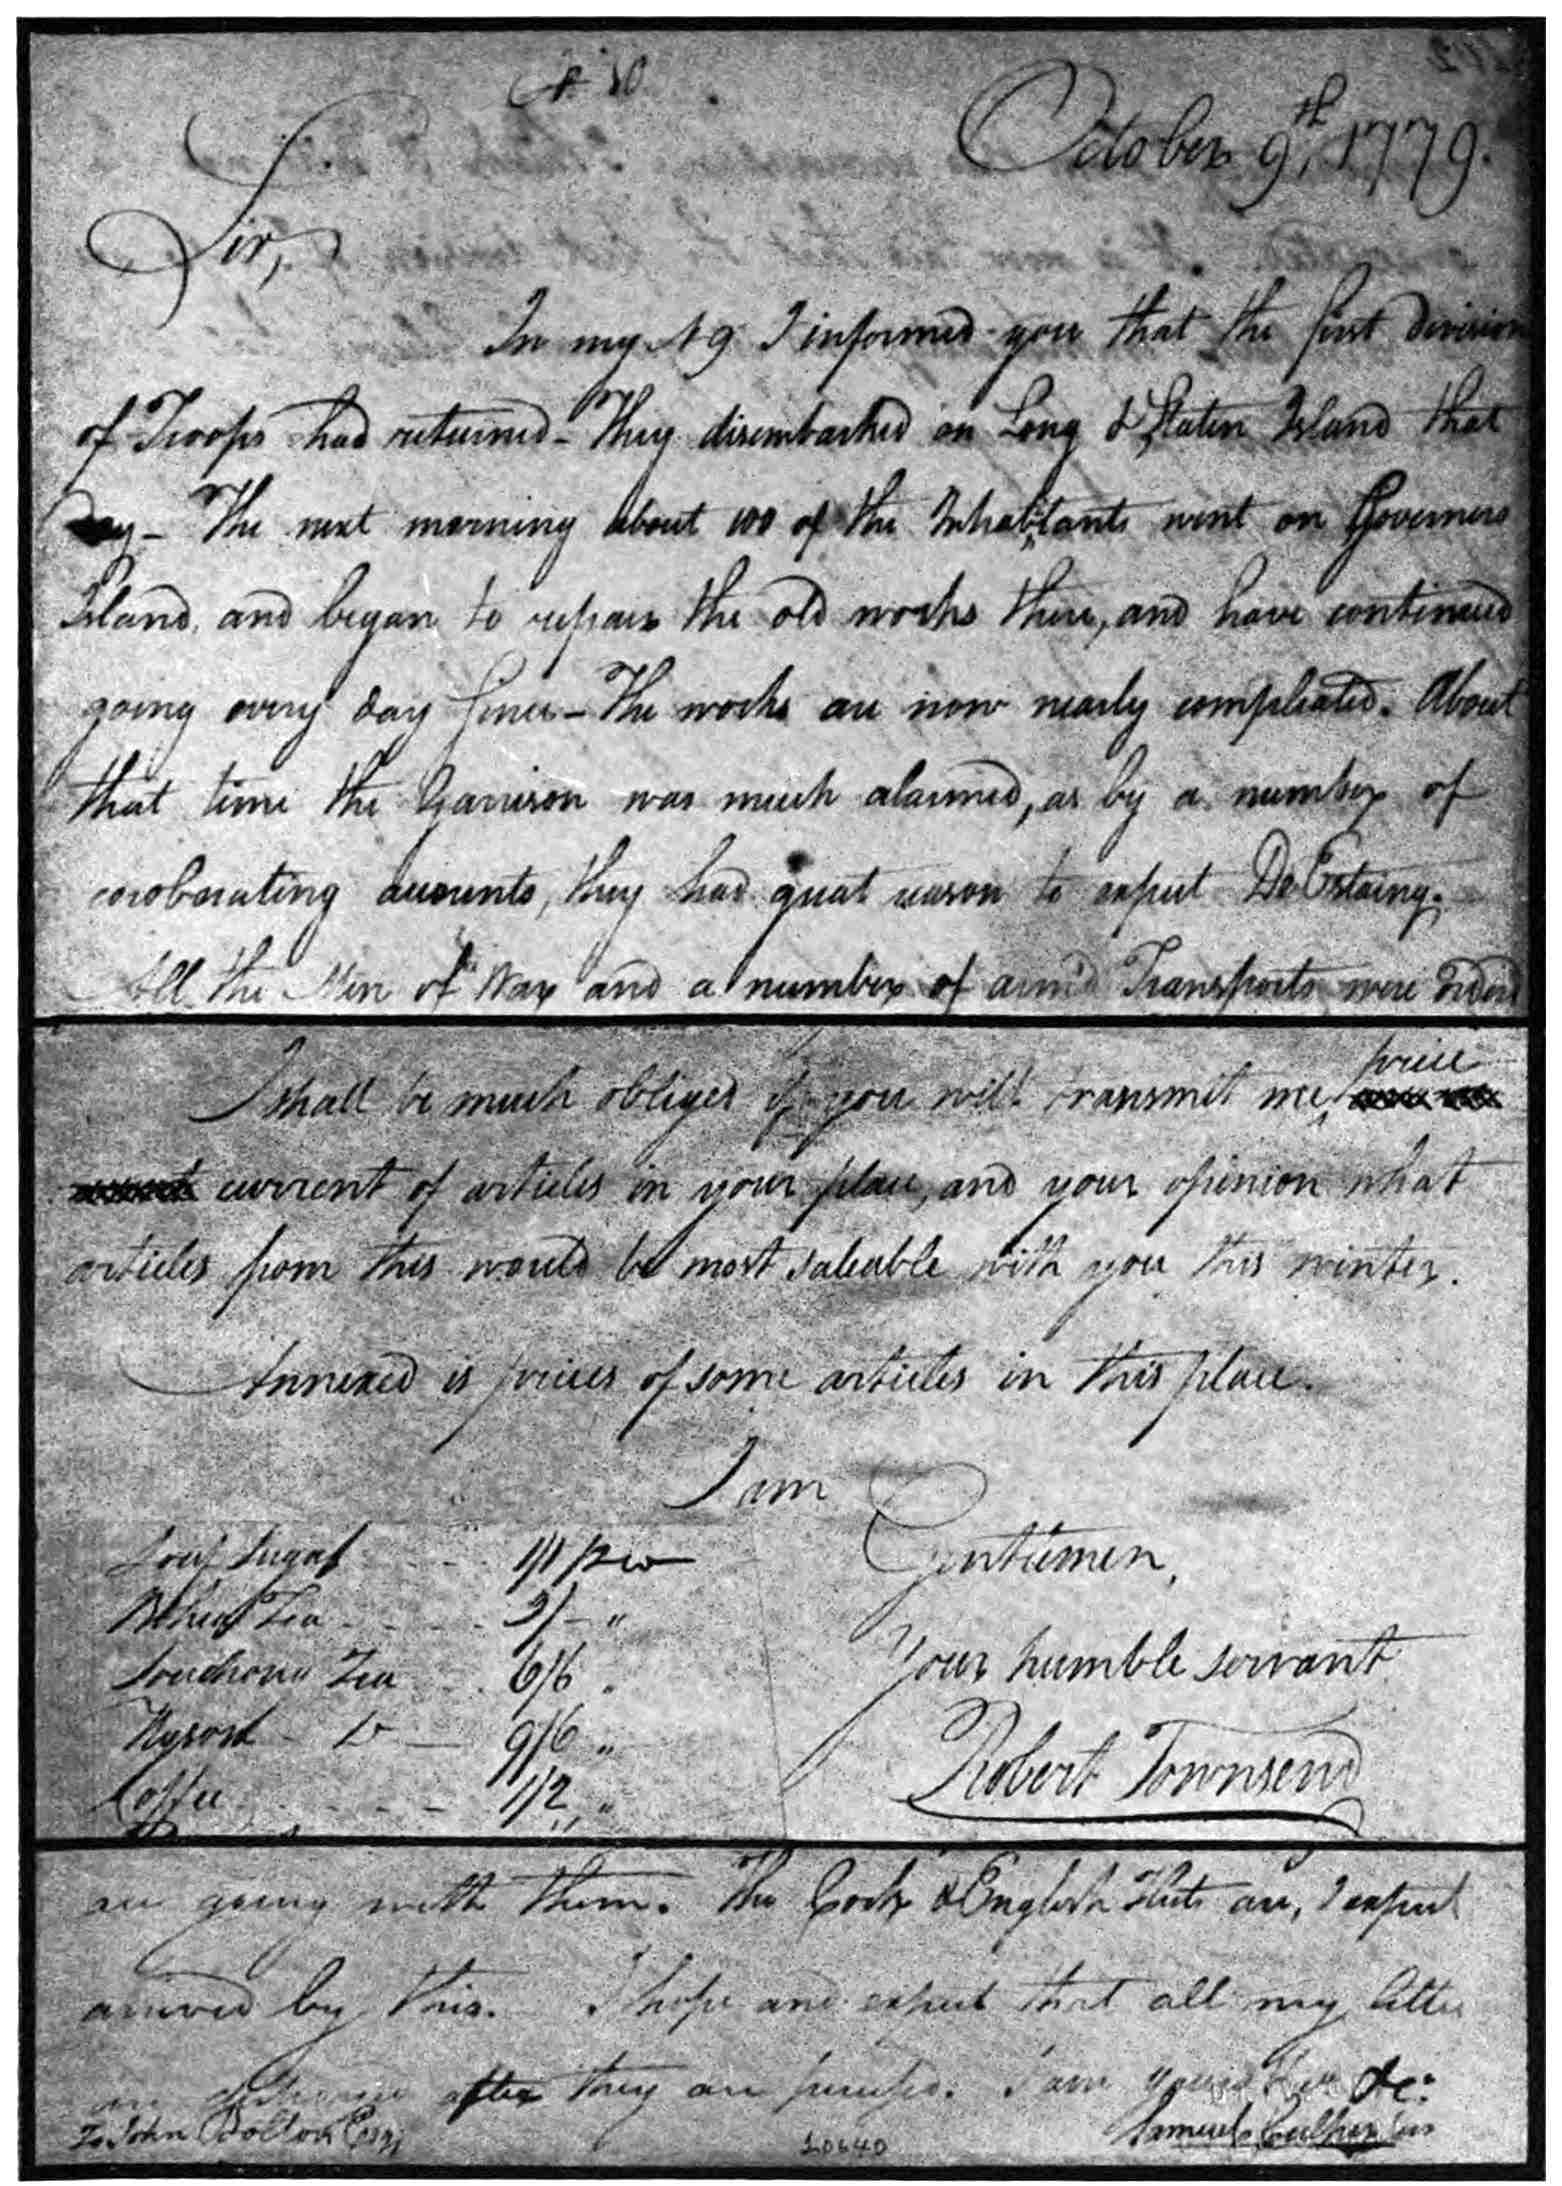 N. 10.
October 9th, 1779.
Sir,
In my N 9 I informed you that the first division
of Troops had returned - They disembarked on Long & Staten Island that
day - The next morning about 100 of the Inhabitants went on Governers
Island, and began to repair the old works there, and have continued
going every day since - The works are now nearly compleated. About
that time the Garrison was much alarmed, as by a number of
coroborating accounts, they had great reason to expect De Estaing.
All the Men of War and a number of arm'd Transports were order'd
price
I shall be much obliged if you will transmit me,
current of articles in your place, and your opinion what
articles from this would be most saleable with you this winter.
Annexed is prices of some articles in this place.
I am
Gentlemen,
Your humble servant
Robert Townsend
Loaf Sugar 1/1
Bohea Tea 3/- "
Souchong Tea 6/6 "
Hyson Do 9/6 "
Coffee 1/2 "
are going with them. The Cork & English Fleets are, I expect
arrived by this. I hope and expect that all my letters
are after they are perused. I am &c:
To John Bolton Esqr
Samuel Culper Jun
10640